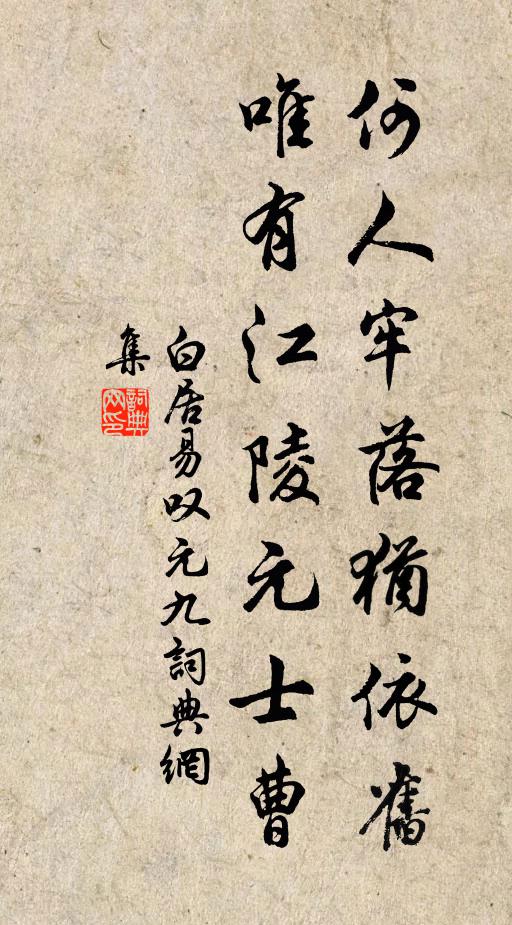 何人牢落猶依舊
唯有江陵元士曹
白居易叹元九詞典網
集
詞典
网印